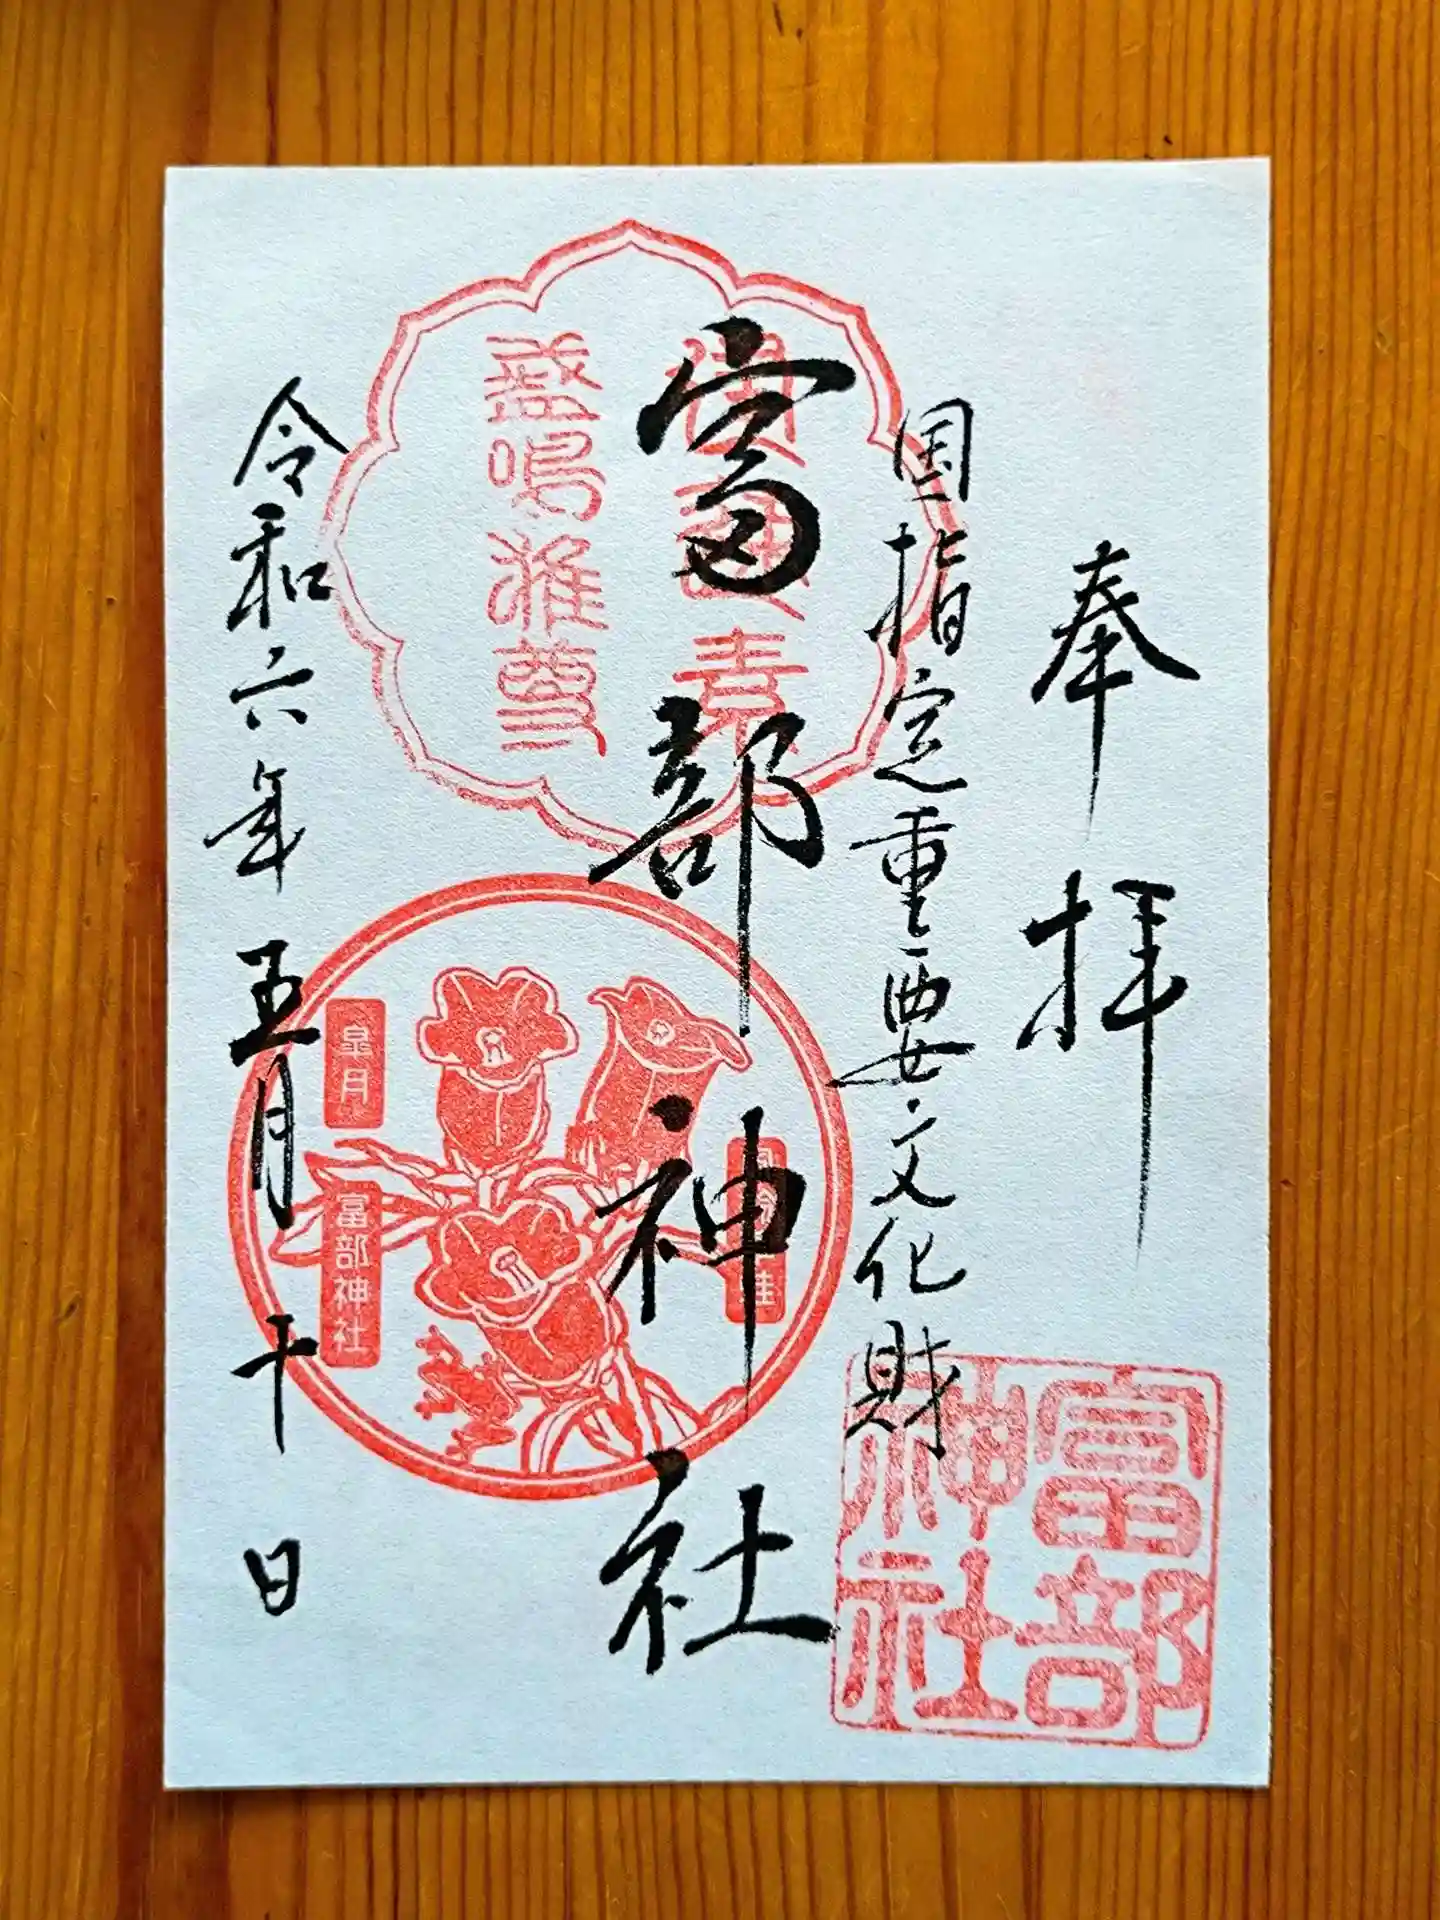 奉拝
国指定重要文化財
富部神社
令和六年五月十日
素
盞鳴雅尊
皐月
富部神社
富部
神社